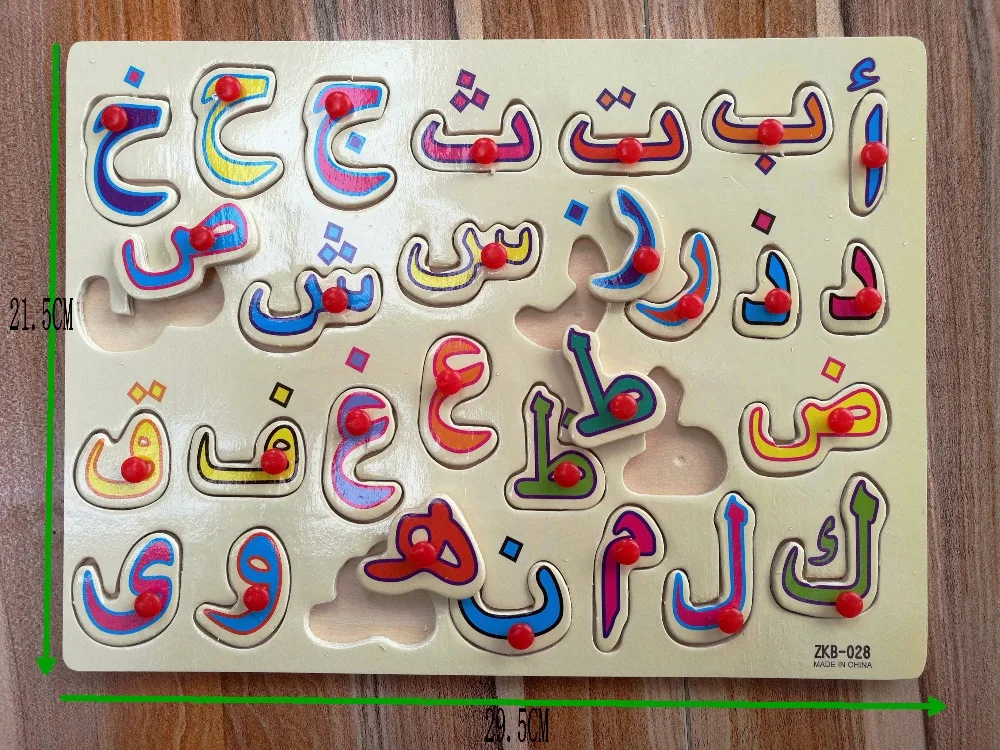 أ ب ت ث ج ح خ
د ذ ر ز س ش ص
21.5CM
ض ط ظ ع غ ف ق
ك ل م ن هـ و ى
ZKB-028
MADE IN CHINA
29.5CM